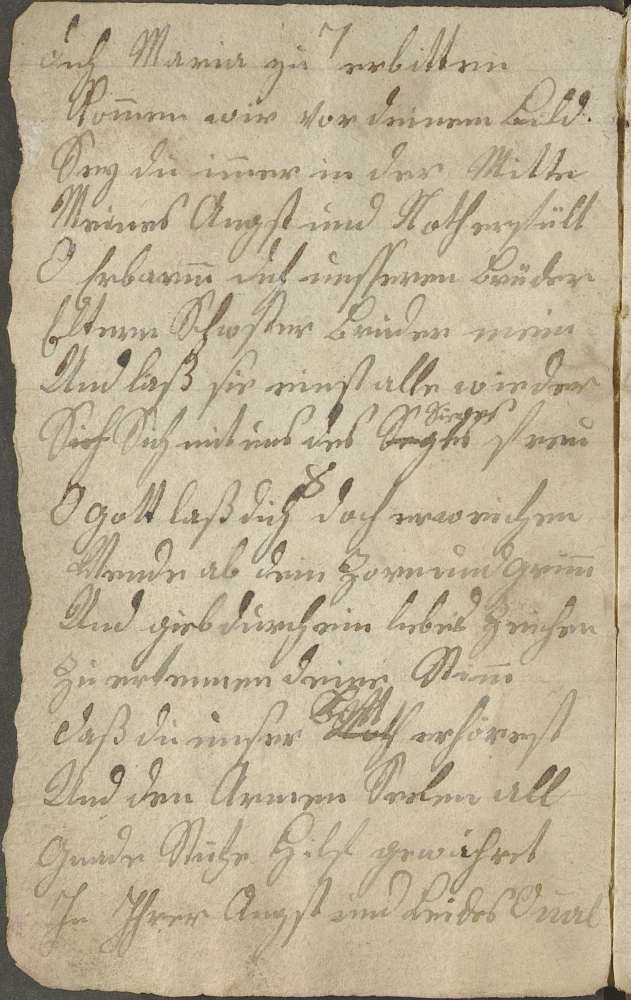 7
dich Maria zu erbitten
Kom̄en wir vor deinem Bild.
Sey du im̄er in der Mitte
Meines Angst und Noth erfült
O Erbarm̄ dich unsseren Brüder
Eltern Schwster Brüder mein
Und laß sie einst alle wieder
Sich Sich mit uns des Sieges freu
8
O gott laß dich doch erweichen
Wende ab dein Zorn und Grim̄
Und gieb durch ein liebes Zeichen
Zu erkennen deine Stim̄
daß du unser erhörest
Und den Armen Seelen all
Gnade Stütze Hilf gewähret
In Ihrer Angst und Leides Qual